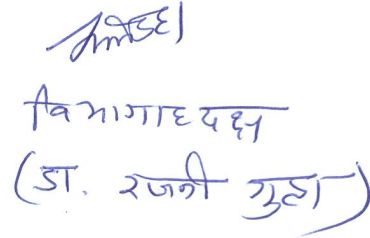 विभागाध्यक्ष
(डा. रजनी गुप्ता)